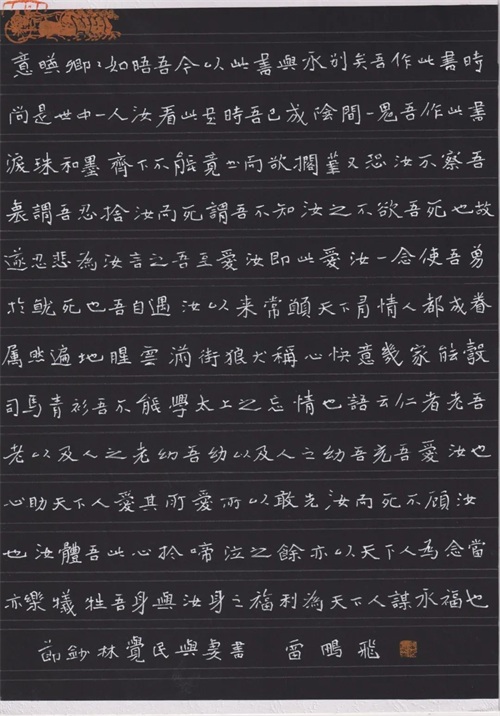 意暎卿〻如晤吾今以此書與永別矣吾作此書時
尚是世中一人汝看此書時吾已成陰間一鬼吾作此書
淚珠和墨齊下不能竟書而欲擱筆又恐汝不察吾
衷謂吾忍捨汝而死謂吾不知汝之不欲吾死也故
遂忍悲為汝言之吾至愛汝即此愛汝一念使吾勇
於就死也吾自遇汝以来常願天下有情人都成眷
属然遍地腥雲滿街狼犬稱心快意幾家能彀
司馬青衫吾不能學太上之忘情也語云仁者老吾
老以及人之老幼吾幼以及人之幼吾充吾愛汝也
心助天下人愛其所愛所以敢先汝而死不顧汝
也汝體吾此心於啼泣之餘亦以天下人為念當
亦樂犧牲吾身與汝身之福利為天下人謀永福也
節鈔林覺民與妻書 雷鵬飛